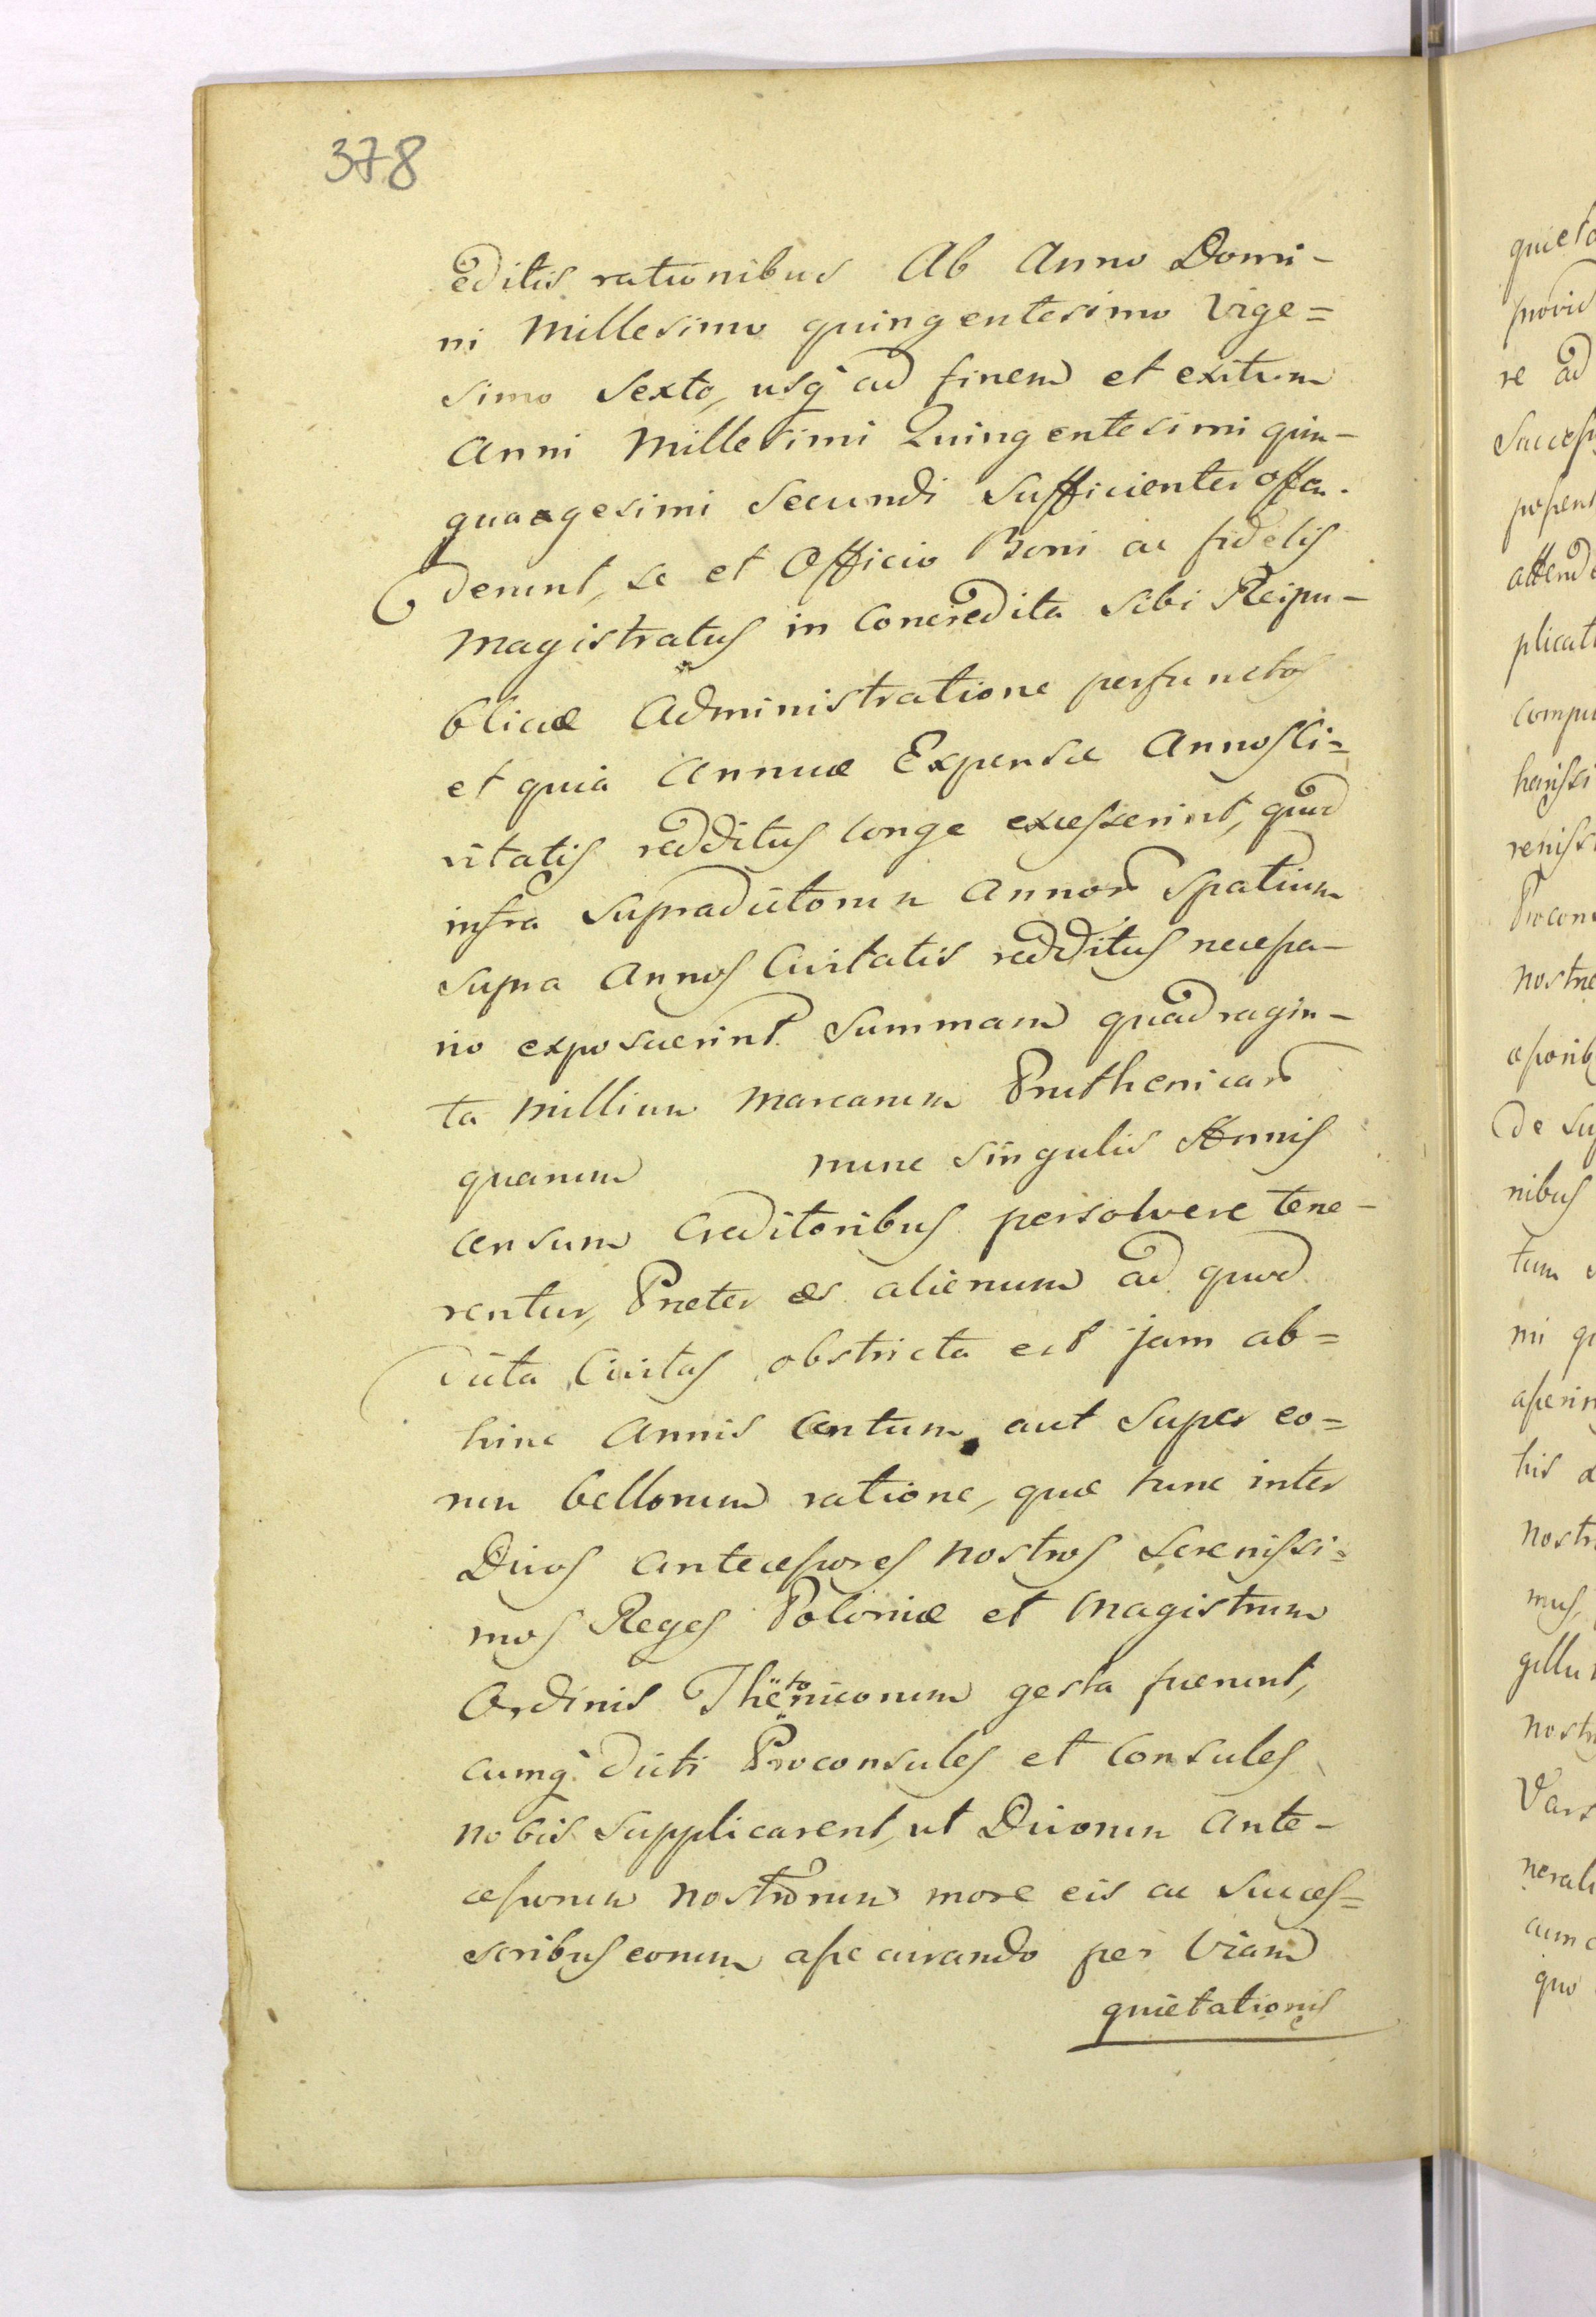 378
editis rationibus Ab Anno Domi-
ni Millesimo quingentesimo Vige=
simo Sexto, usq ad finem et exitum
Anni Millesimi Quingentesimi quin-
quagesimi Secundi Sufficienter osten-
derunt, se et Officio Boni ac fidelis
Magistratus in Concredita sibi Reipu-
blicæ Administratione perfunctos
et quia Annuæ Expensæ Annos Ci=
vitatis redditus longe excesserint, quod
infra Supradictorum Annor Spatium
supra Annos Civitatis redditus necessa-
rio exposuerint Summam quadragin-
ta Millium Marcarum Pruthenicar
quarum nunc singulis Annis
censum Creditoribus persolvere tene-
rentur, Preter æs alienum ad quod
dicta Civitas obstricta est jam ab=
hinc Annis Centum, aut Super eo=
rum bellorum ratione, quæ tunc inter
Divos Antecessores Nostros Serenissi=
mos Reges Poloniæ et Magistrum
Ordinis Theutonicorum gesta fuerunt,
cumq dicti Proconsules et Consules
Nobis supplicarent, ut Divorum Ante-
cessorum Nostrorum more eis ac Succes=
soribus eorum assecurando per Viam
quietationis
quieta
provid
re ad
Success
attende
plicat
compu
Procon
Nostre
de Su
nibus
tum
mi qu
his
Nostr
mus,
gillu
Nostr
Vars
neral
cum
quo